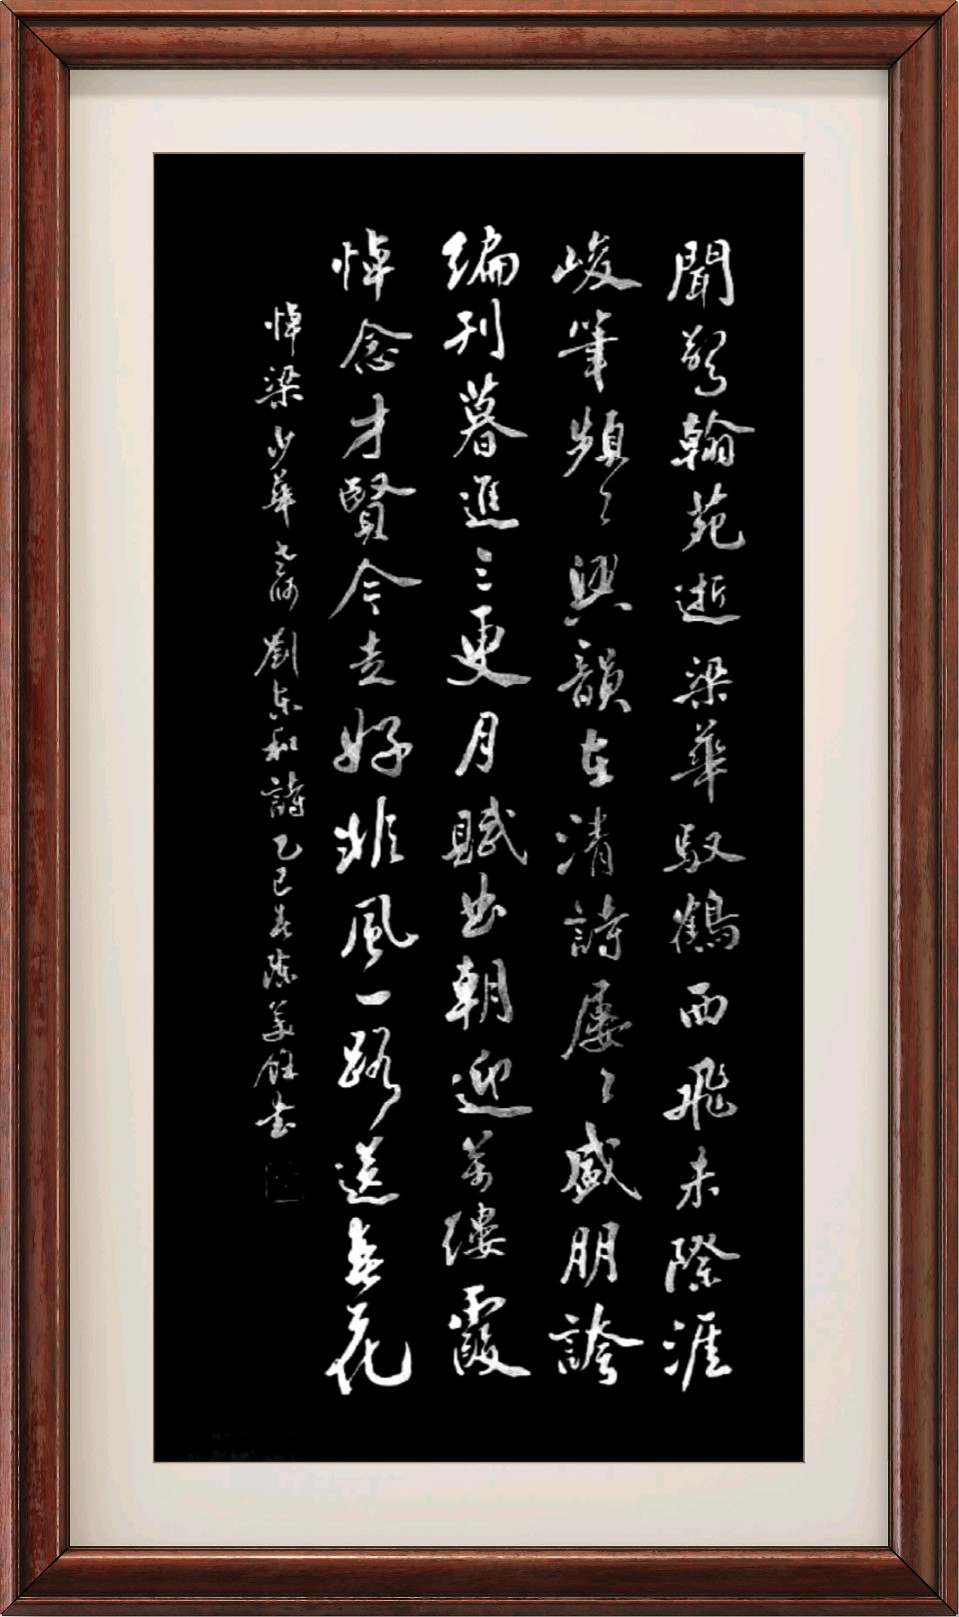 聞驚翰苑逝梁華馭鶴西飛未際涯
峻筆頻々興韻在清詩屢々盛朋誇
編刊暮進三更月賦曲朝迎萬縷霞
悼念才賢今走好悲風一路送春花
悼梁少華老師劉東和詩乙巳春陳美書